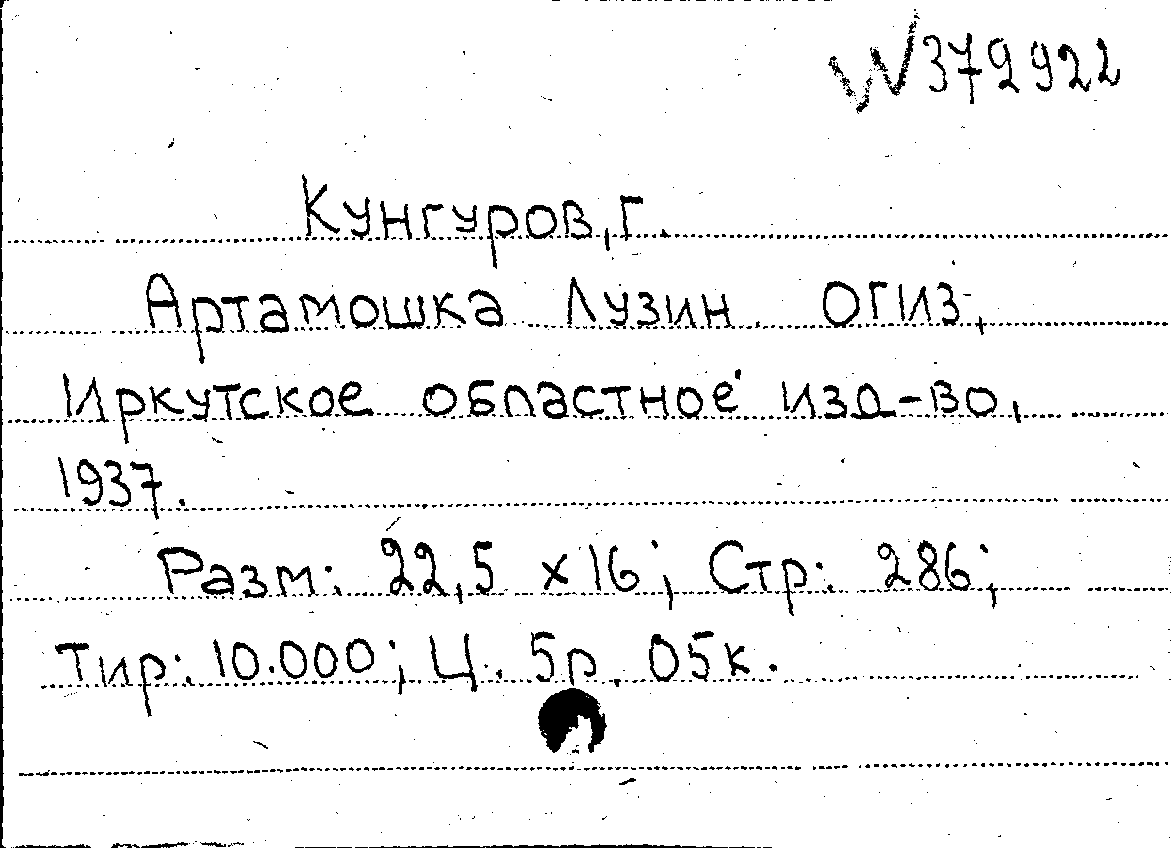 W379922
Кунгуров, Г.
Артамошка Лузин. ОГИЗ,
Иркутское областное изд-во,
1937.
Разм: 22,5 x 16; Стр: 286;
Тир: 10.000; Ц. 5р. 05к.